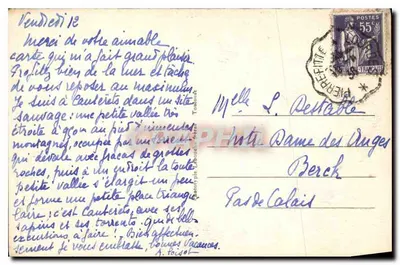 Vendredi 12
Merci de votre aimable
carte qui m'a fait grand plaisir.
Profitez bien de la mer et tâchez
de vous reposer au maximum.
Je suis à Cauterets dans un site
sauvage : une petite vallée très
étroite à 900m au pied d'immenses
montagnes, occupée par un torrent
qui dévale avec fracas de grosses
roches, puis à un endroit la toute
petite vallée s'élargit un peu
et forme une petite place triangu-
laire : c'est Cauterets, avec ses
sapins et ses torrents. Que de belles
excursions à faire ! Bien affectueu-
sement je vous embrasse, bonnes vacances.
POSTES
55c
PIERREFITTE
Melle L. Destable
Notre Dame des Anges
Berck
Pas de Calais